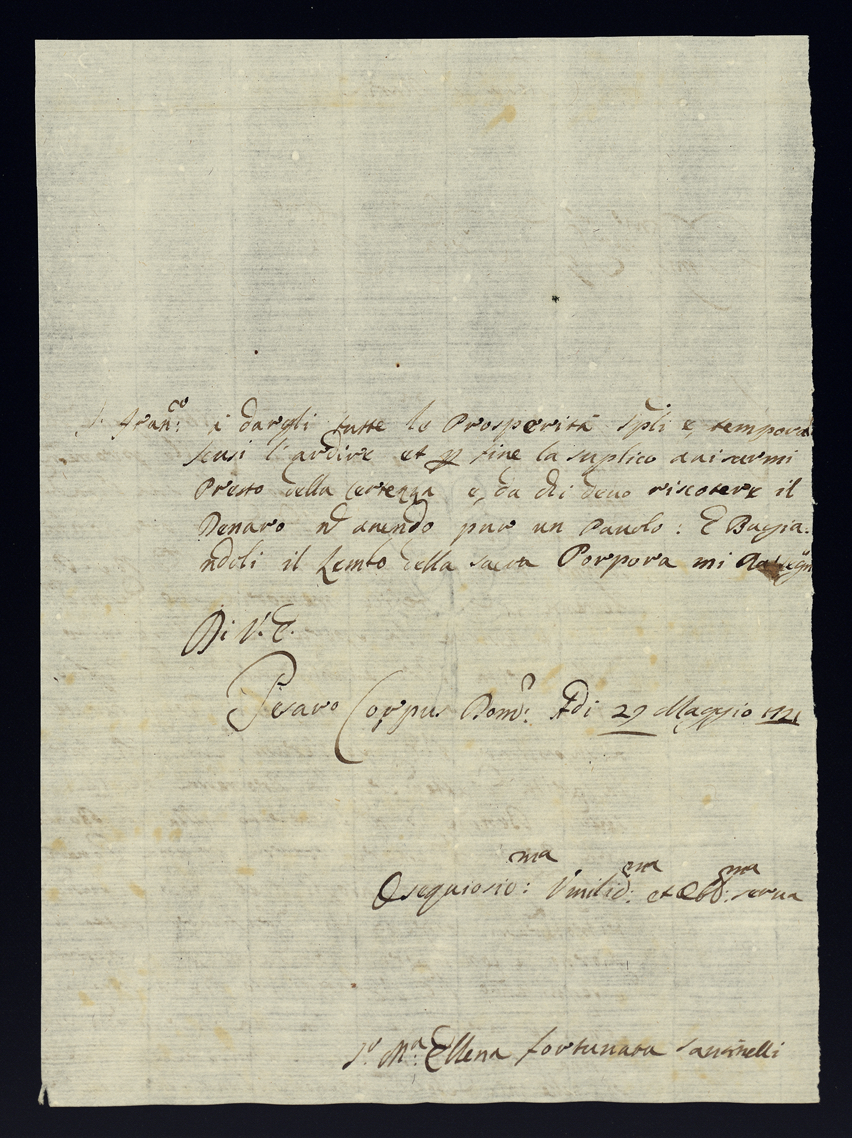 S. Fran:co à dargli tutte le Prosperità Spli e, tempora
scusi l'ardire et p fine la suplico auisarmi
Presto della certezza e, da chi deuo riscotere il
Denaro nō auendo pur un Pauolo: E Bagia-
ndoli il Lembo della sacra Porpora mi
Di V. E.
Pesaro Corpus Dom: Adi 29 Maggio 1721
Osequiosis:ma Vmilis:ma et Obb:ma serua
Sr Ma: Ellena Fortunata Santinelli